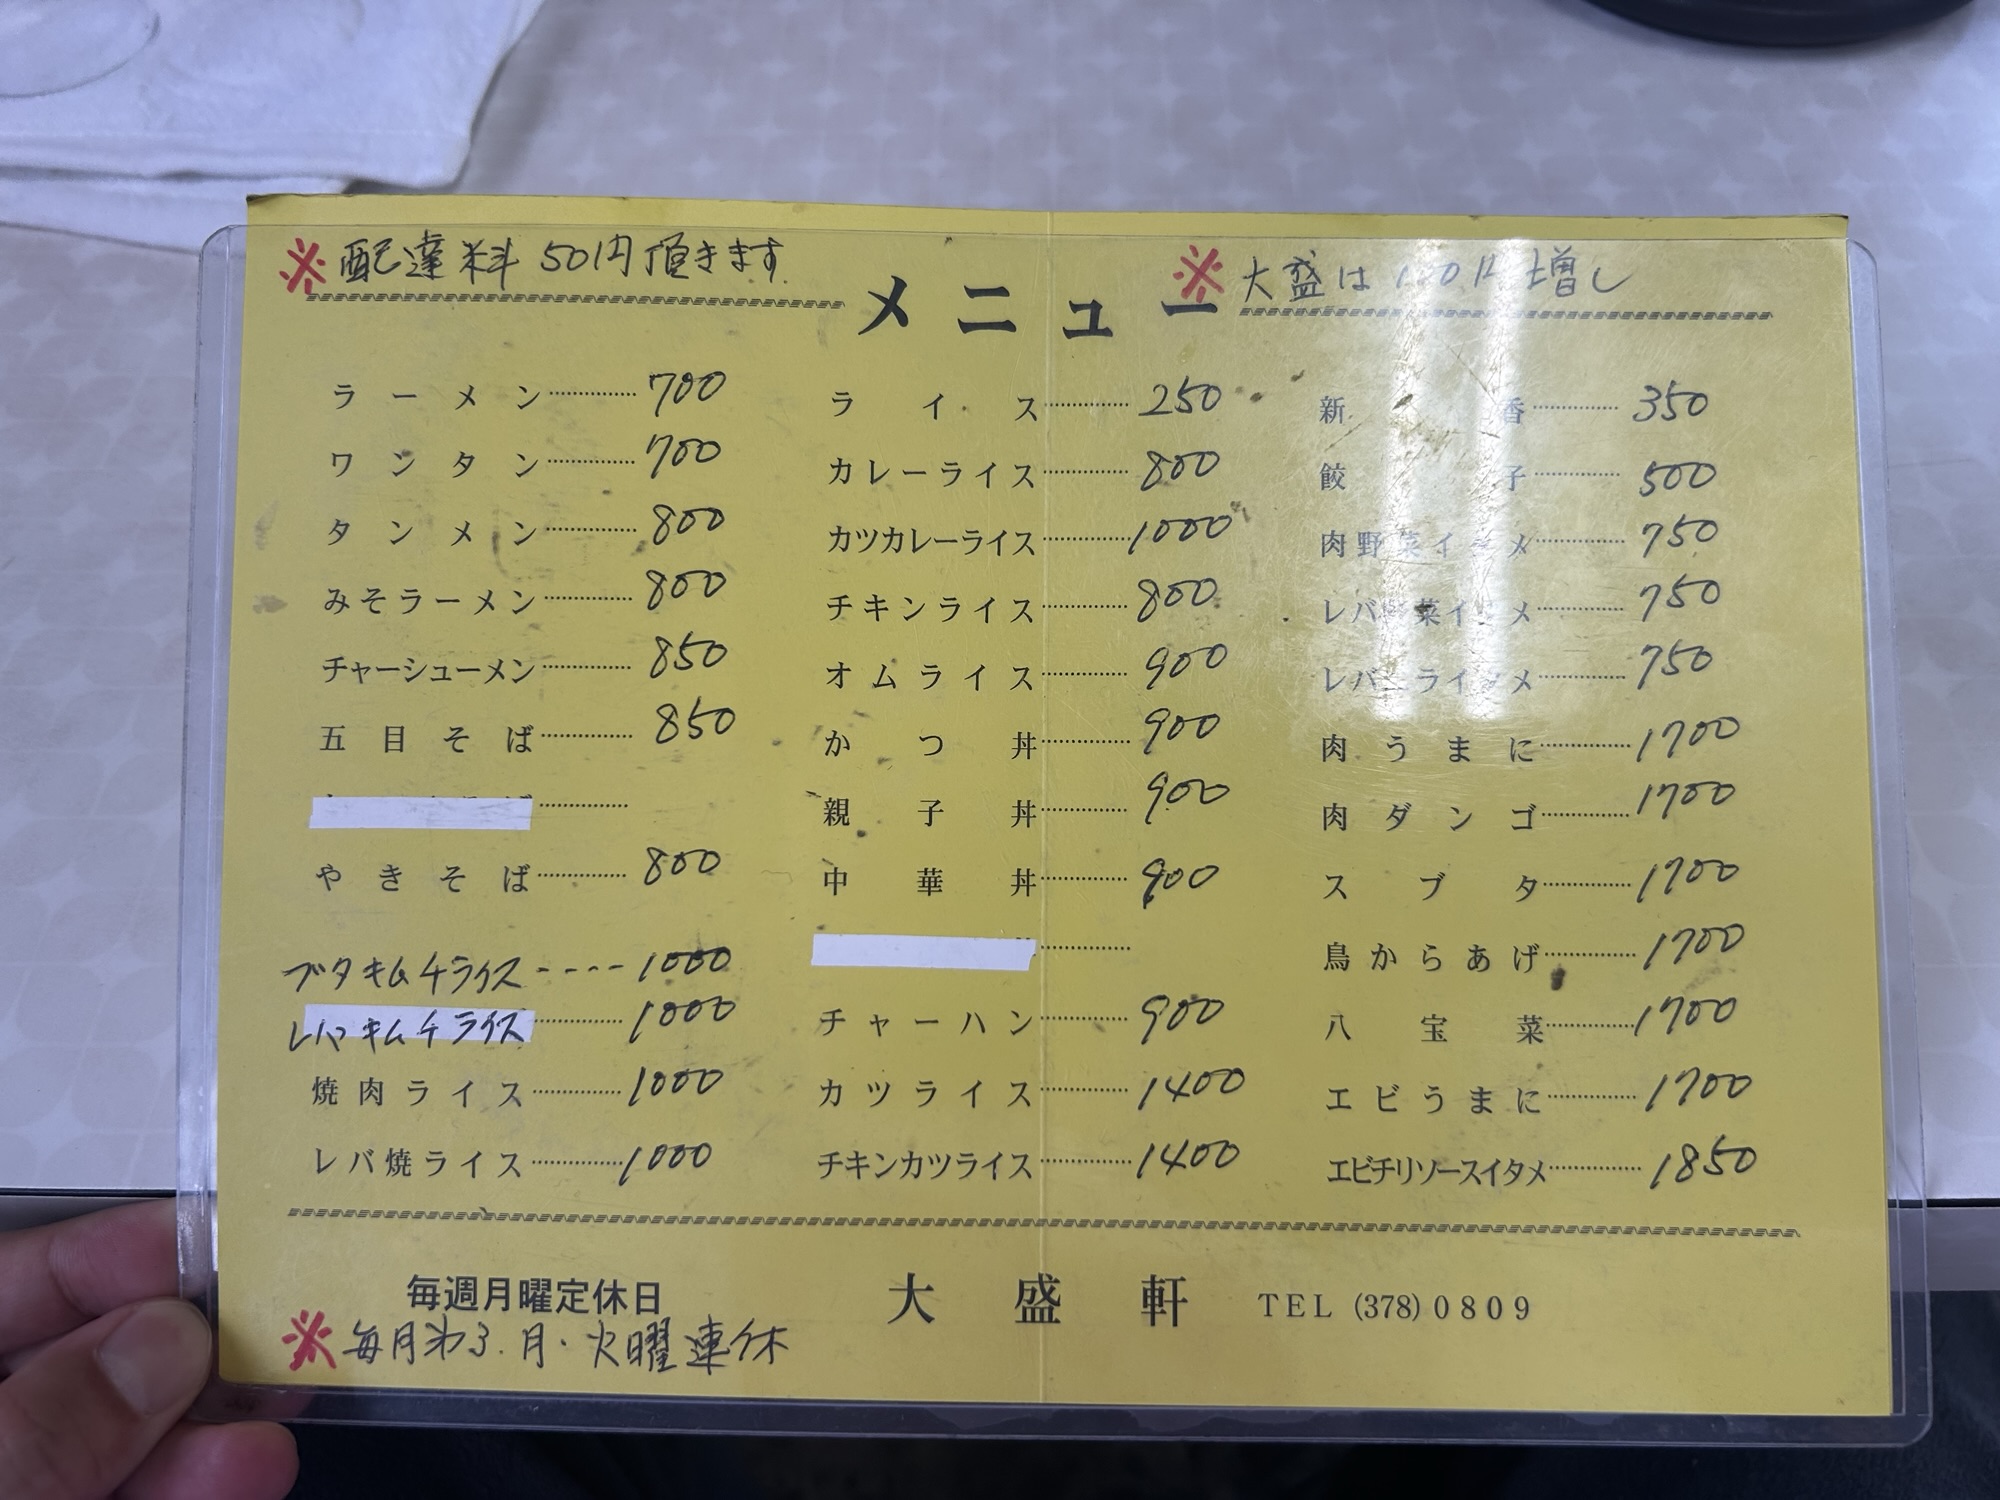 ※配達料 50円頂きます
※大盛は 100円増し
メニュー
ラーメン……………700
ワンタン……………700
タンメン……………800
みそラーメン……………800
チャーシューメン……………850
五目そば……………850
やきそば……………800
ブタキムチライス----1000
レバキムチライス……………1000
焼肉ライス……………1000
レバ焼ライス……………1000
ライス……………250
カレーライス……………800
カツカレーライス……………1000
チキンライス……………800
オムライス……………900
かつ丼……………900
親子丼……………900
中華丼……………900
チャーハン……………900
カツライス……………1400
チキンカツライス……………1400
新香……………350
餃子……………500
肉野菜イタメ……………750
レバ野菜イタメ……………750
レバニライタメ……………750
肉うまに……………1700
肉ダンゴ……………1700
スブタ……………1700
鳥からあげ……………1700
八宝菜……………1700
エビうまに……………1700
エビチリソースイタメ……………1850
毎週月曜定休日
※毎月第3.月・火曜連休
大盛軒 TEL (378) 0809